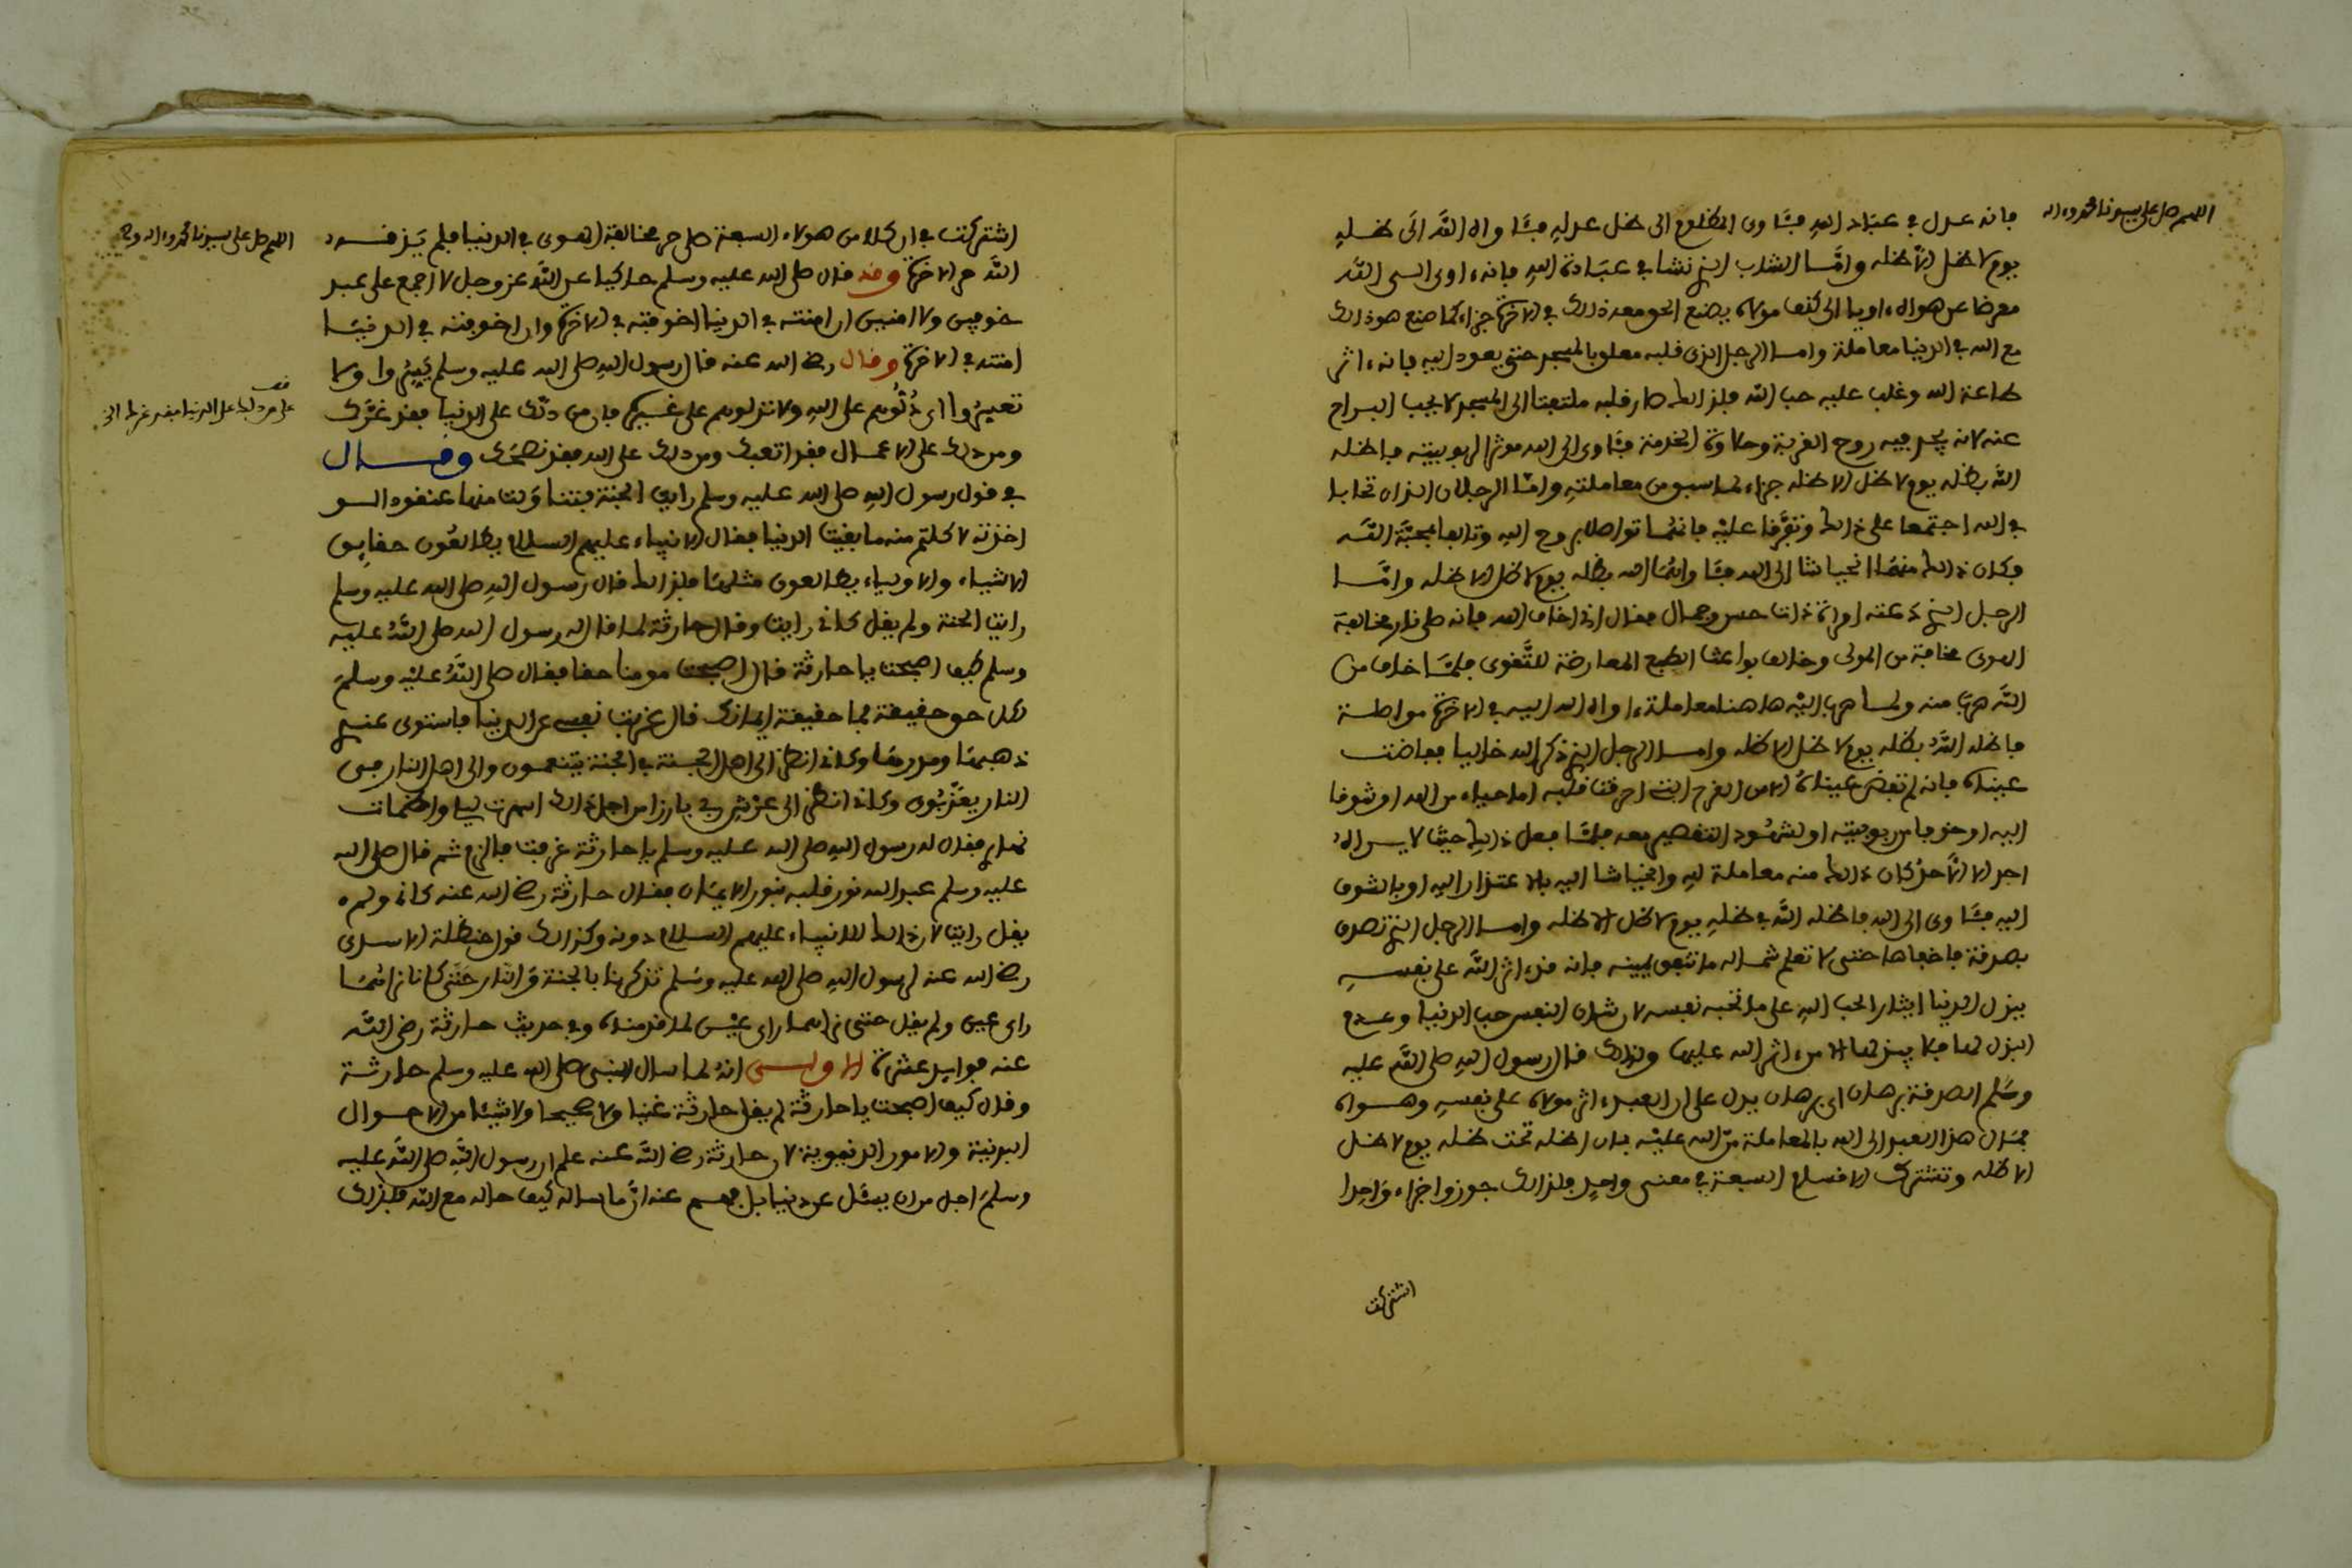 اللهم صل على سيدنا محمد وءاله
فانه عدل في عباد الله فآوى المظلوم الى ظل عدله فآواه الله الى ظله
يوم لا ظل الا ظله واما الشاب الذي نشا في عبادة الله فانه اوى الى الله
معرضا عن هواه اويا الى كنف مولاه يصنع الحق معه ذلك في الاخرة جزاء كما صنع هو ذلك
مع الله في الدنيا معاملة واما الرجل الذي قلبه معلق بالمسجد حتى يعود اليه فانه ءاثر
طاعة الله وغلب عليه حب الله فلذلك صار قلبه ملتفتا الى المسجد لا يحب البراح
عنه لانه يجد فيه روح القربة وحلاوة الخدمة فآوى الى الله موثرا لربوبيته فاظله
الله بظله يوم لا ظل الا ظله جزاء لما سبق من معاملته واما الرجلان اللذان تحابا
في الله اجتمعا على ذلك وتفرقا عليه فانهما تواصلا بروح الله وتالفا بمحبة الله
وكان ذلك منهما انحياشا الى الله فآواهما الله بظله يوم لا ظل الا ظله واما
الرجل الذي دعته امراة ذات حسن وجمال فقال اني اخاف الله فانه صلى نار مخالفة
الهوى مخافة من المولى وخالف بواعث الطبع المعارضة للتقوى فلما خاف من
الله هرب منه ولما هرب اليه هاهنا معاملة ءاواه الله اليه في الاخرة مواصلة
فاظله الله بظله يوم لا ظل الا ظله واما الرجل الذي ذكر الله خاليا ففاضت
عيناه فانه لم تفض عيناه الا من القرح التي احرقت قلبه اما حياء من الله او شوقا
اليه او خوفا من ربوبيته او لشهود التقصير معه فلما فعل ذلك حيث لا يراه
احد الا الاحد كان ذلك منه معاملة لله وانحياشا اليه بالاعتذار اليه او بالشوق
اليه فآوى الى الله فاظله الله في ظله يوم لا ظل الا ظله واما الرجل الذي تصدق
بصدقة فاخفاها حتى لا تعلم شماله ما تنفق يمينه فانه قد ءاثر الله على نفسه
ببذل الدنيا ايثارا لحب الله على ما تحبه نفسه لان شان النفس حب الدنيا وعدم
البذل لها فلا يبذلها الا من ءاثر الله عليها ولذلك قال رسول الله صلى الله عليه
وسلم الصدقة برهان اي برهان يدل على ان العبد ءاثر مولاه على نفسه وهواه
فمال هذا العبد الى الله بالمعاملة من الله عليه بان اظله تحت ظله يوم لا ظل
الا ظله وتشترك الاقسام السبعة في معنى واحد فلذلك جوزوا جزاء واحدا
اشتركت
اللهم صل على سيدنا محمد وءاله وصحبه
اشتركت في ان كلا من هولاء السبعة صلى حر مخالفة الهوى في الدنيا فلم يذقه
الله حر الاخرة وقد قال صلى الله عليه وسلم حاكيا عن الله عز وجل لا اجمع على عبد
خوفين ولا امنين ان امنته في الدنيا اخفته في الاخرة وان اخفته في الدنيا
امنته في الاخرة وقال رضي الله عنه قال رسول الله صلى الله عليه وسلم يسروا ولا
تعسروا اي دلوهم على الله ولا تدلوهم على غيره فان من دلك على الدنيا فقد غرك
ومن دلك على الاعمال فقد اتعبك ومن دلك على الله فقد نصحك وقال
في قول رسول الله صلى الله عليه وسلم رايت الجنة فتناولت منها عنقودا لو
اخذته لاكلتم منه ما بقيت الدنيا فقال الانبياء عليهم السلام يطالعون حقايق
الاشياء والاولياء يطالعون مثلها فلذلك قال رسول الله صلى الله عليه وسلم
رايت الجنة ولم يقل كاني رايت وقال حارثة لما قال له رسول الله صلى الله عليه
وسلم كيف اصبحت يا حارثة قال اصبحت مومنا حقا فقال صلى الله عليه وسلم
لكل حق حقيقة فما حقيقة ايمانك قال عزفت نفسي عن الدنيا فاستوى عندي
ذهبها ومدرها وكاني انظر الى اهل الجنة في الجنة يتنعمون والى اهل النار في
النار يعذبون وكاني انظر الى عرش ربي بارزا من اجل ذلك اسهرت ليلي واظمات
نهاري فقال له رسول الله صلى الله عليه وسلم يا حارثة عرفت فالزم ثم قال صلى الله
عليه وسلم عبد الله نور قلبه بنور الايمان فقال حارثة رضي الله عنه كاني ولم
يقل رايت لان ذلك للانبياء عليهم السلام دونه وكذلك قول حنظلة الاسدي
رضي الله عنه لرسول الله صلى الله عليه وسلم تذكرنا بالجنة والنار حتى كانا نراهما
راي عين ولم يقل حتى نراهما راي عين لما قدمناه وفي حديث حارثة رضي الله
عنه فوايد عشرة الاولى انه لما سال النبي صلى الله عليه وسلم حارثة
وقال كيف اصبحت يا حارثة لم يقل حارثة غنيا ولا صحيحا ولا شيئا من الاحوال
البدنية والامور الدنيوية لان حارثة رضي الله عنه علم ان رسول الله صلى الله عليه
وسلم اجل من ان يسئل عن دنيا بل فهم عنه انما ساله كيف حاله مع الله فلذلك
قف
على من دلك على الدنيا فقد غرك الى